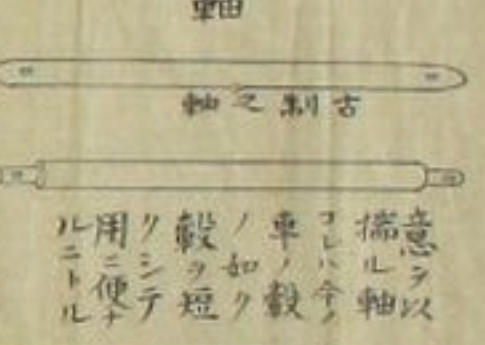 軸
古制之軸
意ヲ以
揣ル軸
コレハ今ノ
車ノ轂
ノ如ク
轂ヲ短
クシテ
用ニ便ナ
ルニトル